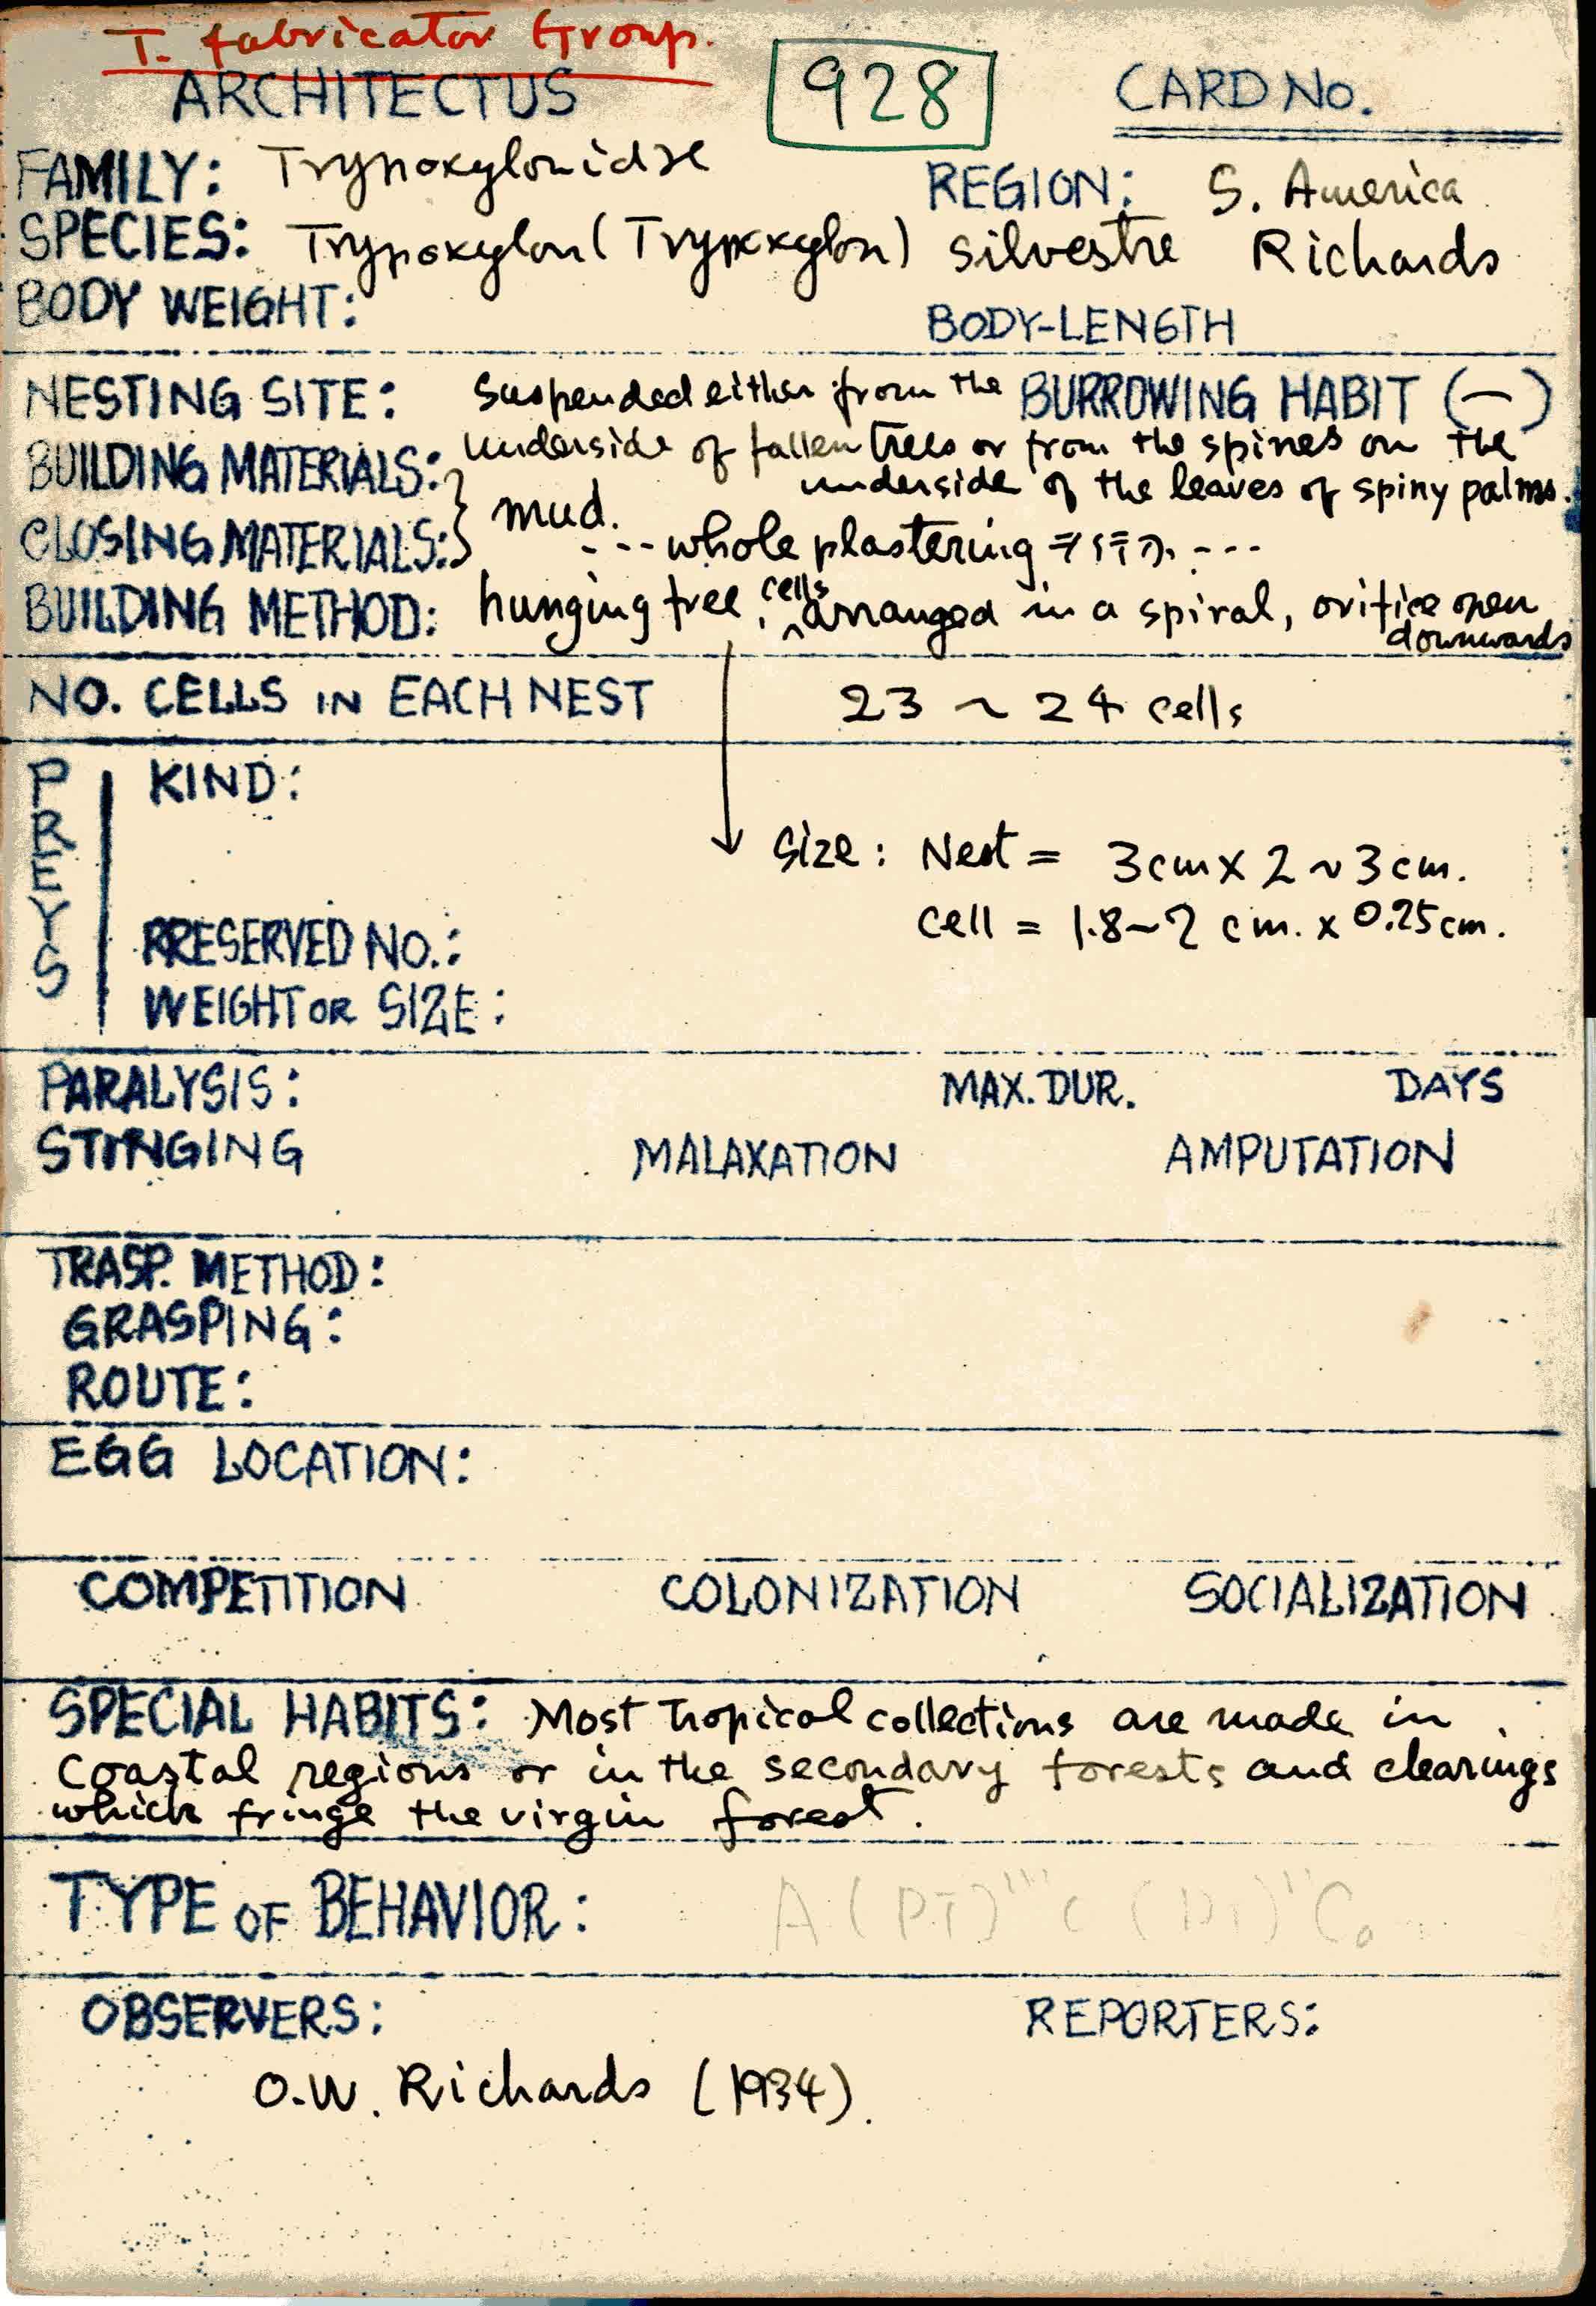 T. fabricator Group.
ARCHITECTUS 928 CARD No.
FAMILY: Trypoxylonidae REGION: S. America
SPECIES: Trypoxylon (Trypoxylon) silvestre Richards
BODY WEIGHT: BODY-LENGTH
NESTING SITE: Suspended either from the BURROWING HABIT (—)
underside of fallen trees or from the spines on the
BUILDING MATERIALS: underside of the leaves of spiny palms.
CLOSING MATERIALS: } mud.
--- whole plastering ---
BUILDING METHOD: hunging free. cells arranged in a spiral, orifice open downwards
NO. CELLS IN EACH NEST 23 ~ 24 cells
PREYS
KIND:
Size: Nest = 3cm x 2 ~ 3 cm.
Cell = 1.8 ~ 2 cm. x 0.25 cm.
PRESERVED NO.:
WEIGHT OR SIZE:
PARALYSIS: MAX. DUR. DAYS
STINGING MALAXATION AMPUTATION
TRASP. METHOD:
GRASPING:
ROUTE:
EGG LOCATION:
COMPETITION COLONIZATION SOCIALIZATION
SPECIAL HABITS: Most tropical collections are made in
coastal regions or in the secondary forests and clearings
which fringe the virgin forest.
TYPE OF BEHAVIOR:
OBSERVERS: REPORTERS:
O.W. Richards (1934).